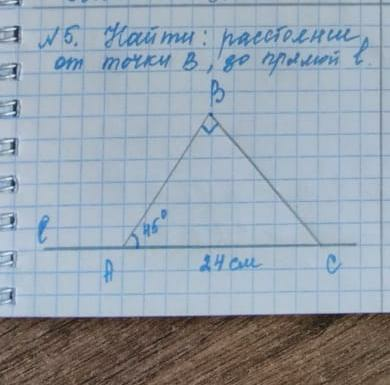 №5. Найти: расстояние
от точки B, до прямой ℓ.
B
45°
ℓ
A 24 см C